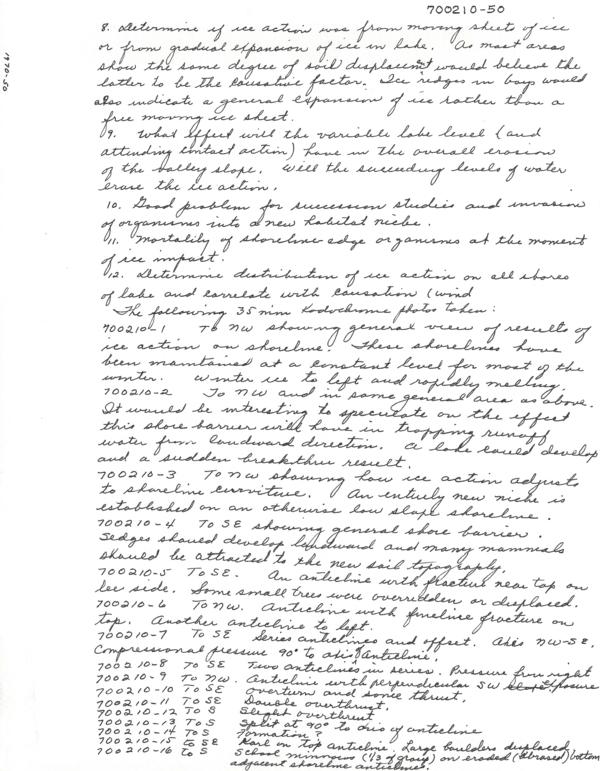 700210-50
1970-50
8. Determine if ice action was from moving sheets of ice
or from gradual expansion of ice in lake. As most areas
show the same degree of soil displacement would believe the
latter to be the causative factor. Ice ridges in bays would
also indicate a general expansion of ice rather than a
free moving ice sheet.
9. What effect will the variable lake level (and
attending contact action) have in the overall erosion
of the valley slope. Will the succeeding levels of water
erase the ice action.
10. Good problem for succession studies and invasion
of organisms into a new habitat niche.
11. Mortality of shoreline edge organisms at the moment
of ice impact.
12. Determine distribution of ice action on all shores
of lake and correlate with causation (wind
The following 35 mm Kodochrome photos taken:
700210-1 To NW showing general view of results of
ice action on shoreline. These shorelines have
been maintained at a constant level for most of the
winter. Winter ice to left and rapidly melting.
700210-2 To NW and in same general area as above.
It would be interesting to speculate on the effect
this shore barrier will have in trapping runoff
water from landward direction. A lake could develop
and a sudden breakthru result.
700210-3 To NW showing how ice action adjusts
to shoreline curviture. An entirely new niche is
established on an otherwise low slope shoreline.
700210-4 To SE showing general shore barrier.
Sedges should develop landward and many mammals
should be attracted to the new soil topography.
700210-5 To SE. An anticline with fracture near top on
lee side. Some small trees were overridden or displaced.
700210-6 To NW. Anticline with fineline fracture on
top. Another anticline to left.
700210-7 To SE Series anticlines and offset. Axis NW-SE.
Compressional pressure 90° to axis of anticline.
700210-8 To SE Two anticlines in series. Pressure from right
700210-9 To NW. Anticline with perpendicular SW exposure
700210-10 To SE overturn and some thrust.
700210-11 To SE Double overthrust.
700210-12 To S Slight overthrust
700210-13 To S Split at 90° to axis of anticline
700210-14 To S Formation?
700210-15 to SE Karl on top anticline. Large boulders displaced
700210-16 to S School minnows (1/3 of group) on eroded (abrased) bottom
adjacent shoreline anticlines.